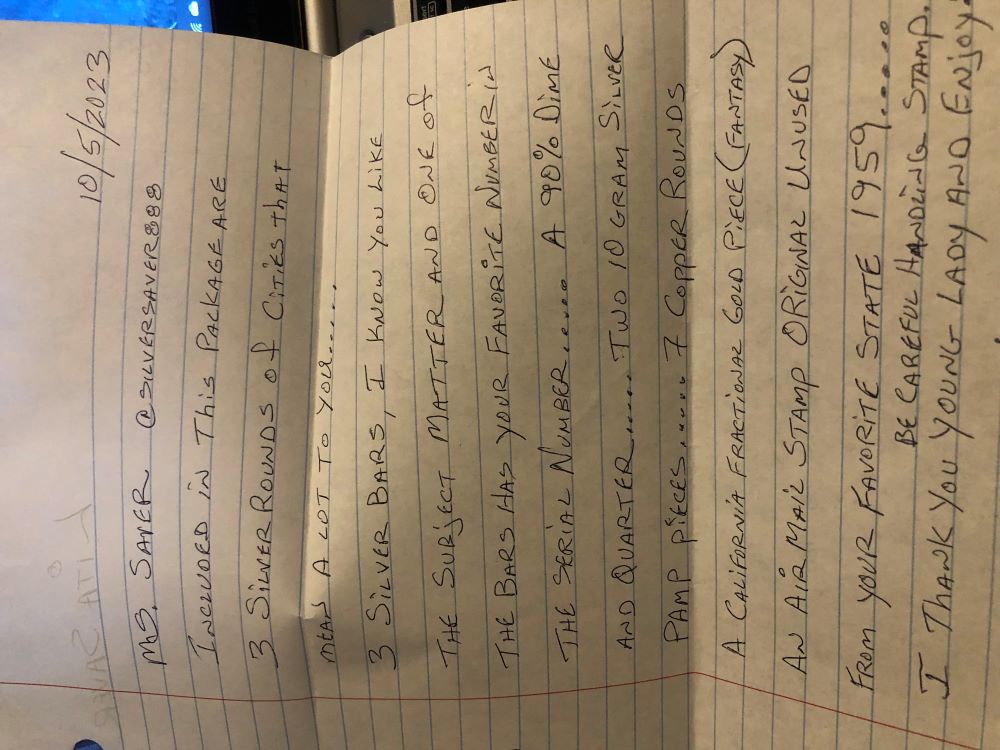 10/5/2023
MS. SAVER @SILVERSAVER888
INCLUDED IN THIS PACKAGE ARE
3 SILVER ROUNDS OF CITIES THAT
MEAN A LOT TO YOU.....
3 SILVER BARS, I KNOW YOU LIKE
THE SUBJECT MATTER AND ONE OF
THE BARS HAS YOUR FAVORITE NUMBER IN
THE SERIAL NUMBER..... A 90% DIME
AND QUARTER..... TWO 10 GRAM SILVER
PAMP PIECES..... 7 COPPER ROUNDS
A CALIFORINIA FRACTIONAL GOLD PIECE (FANTASY)
AN AIR MAIL STAMP ORIGINAL UNUSED
FROM YOUR FAVORITE STATE 1959......
BE CAREFUL HANDLING STAMP.
I THANK YOU YOUNG LADY AND ENJOY!